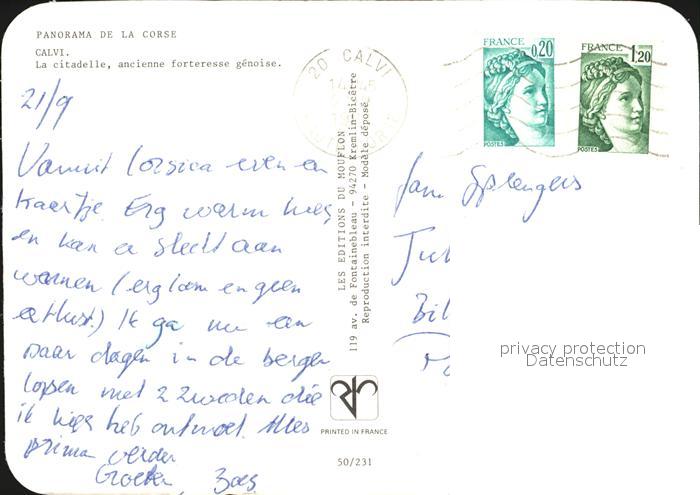 PANORAMA DE LA CORSE
CALVI.
La citadelle, ancienne forteresse génoise.
21/9
Vanuit Corsica even en
kaartje. Erg warm hier,
en kan er slecht aan
wennen (erg lam en geen
eetlust.) Ik ga nu een
paar dagen in de bergen
lopen met 2 Zweden die
ik hier heb ontmoet. Alles
prima verder
Groeten,
LES EDITIONS DU MOUFLON
119 av. de Fontainebleau - 94270 Kremlin-Bicêtre
Reproduction interdite - Modèle déposé
PRINTED IN FRANCE
50/231
20 CALVI
FRANCE 0,20
POSTES
FRANCE 1,20
POSTES
Sprengers
Bil
privacy protection
Datenschutz